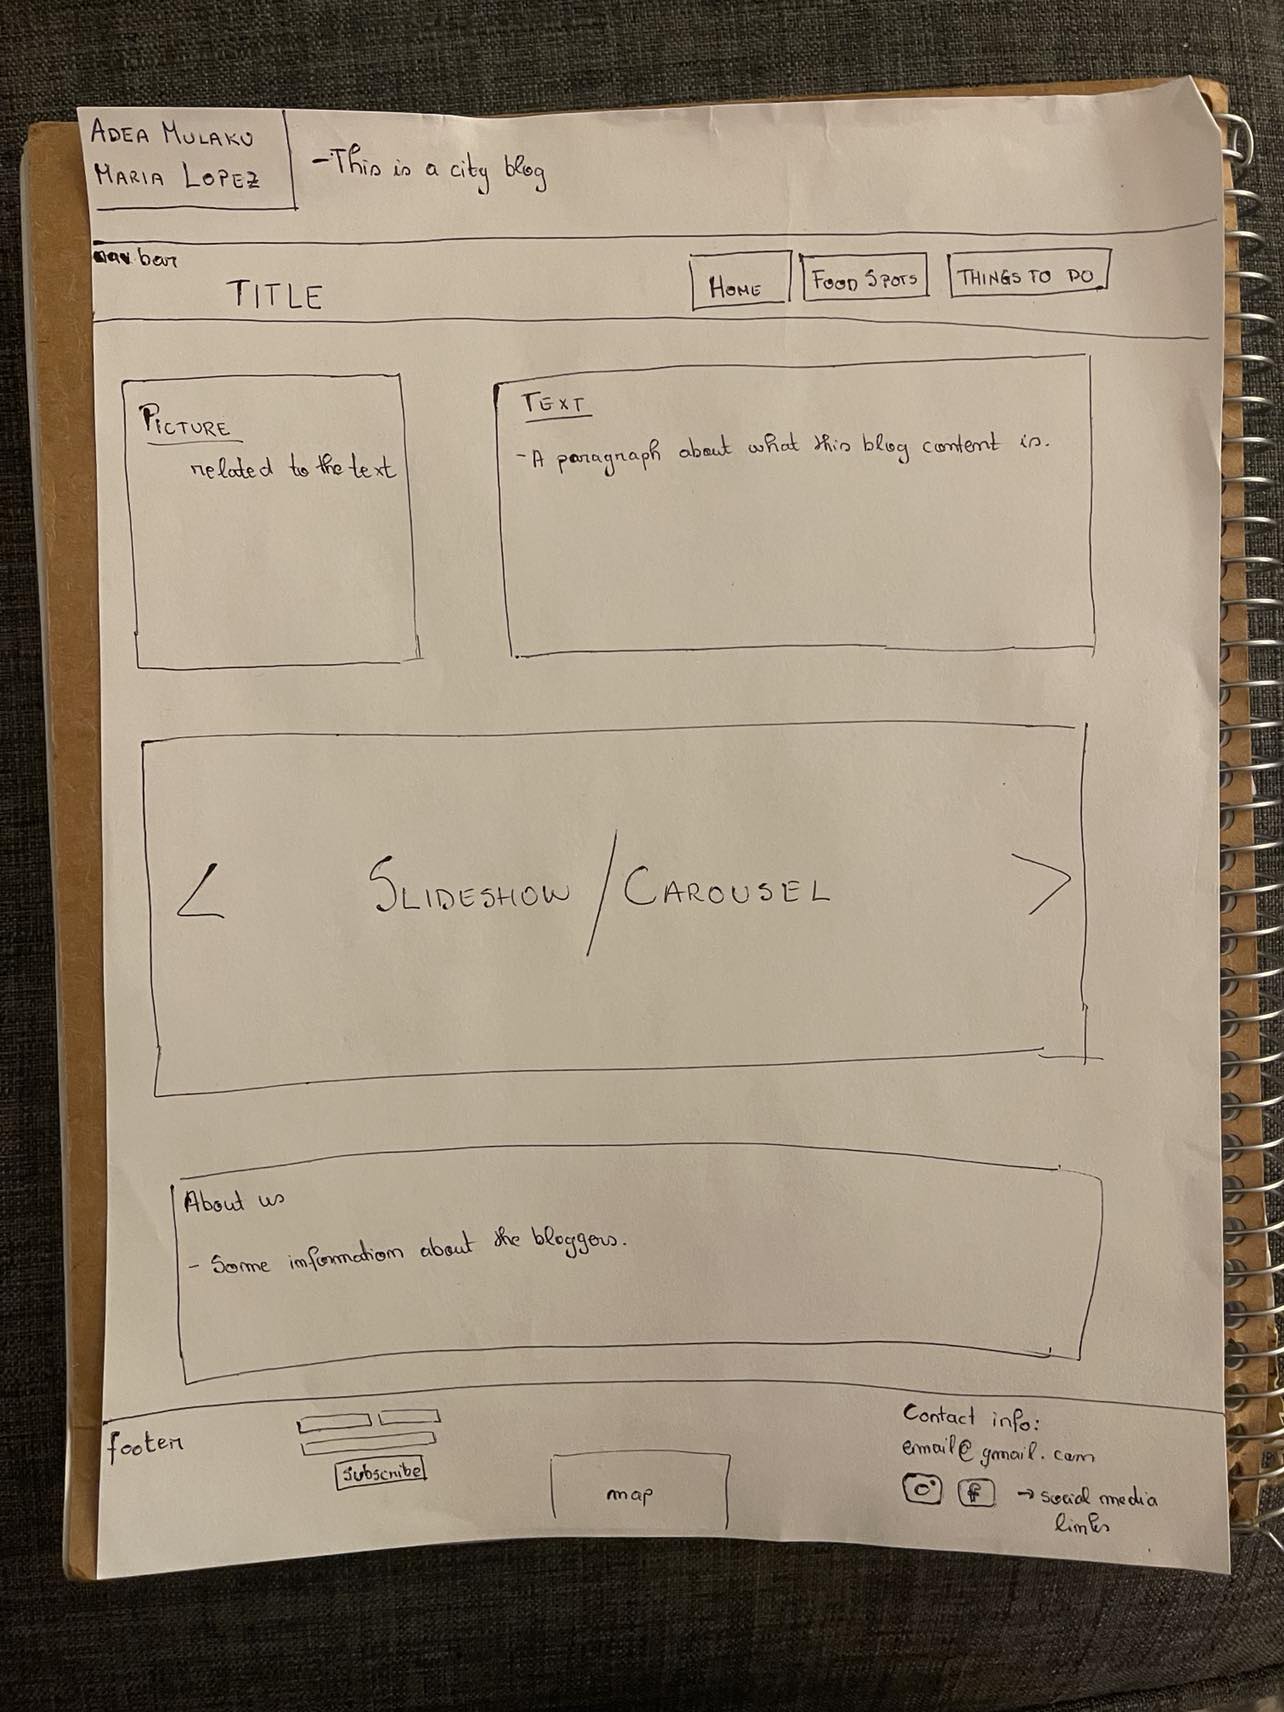 ADEA MULAKU
MARIA LOPEZ
-This is a city blog
nav bar
TITLE
HOME
FOOD SPOTS
THINGS TO DO
PICTURE
related to the text
TEXT
-A paragraph about what this blog content is.
< SLIDESHOW / CAROUSEL >
About us
- Some information about the bloggers.
footer
Subscribe
map
Contact info:
email@gmail.com
f → social media
links